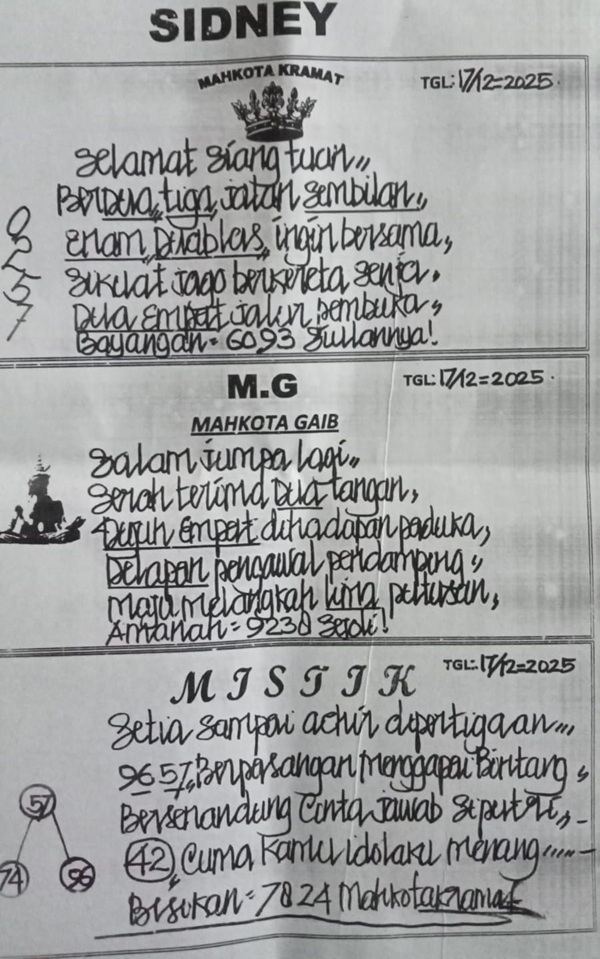 SIDNEY
MAHKOTA KRAMAT
TGL: 17/12=2025.
Selamat siang tuan,,
Berdua,, tiga, jalan sembilan,,
Enam, Duablas,, ingin bersama,
Sikilat jago berkereta senja.
Dua empat jalur pembuka,
Bayangan = 6093 Jullannya!
5
7
M.G
TGL: 17/12=2025.
MAHKOTA GAIB
Salam jumpa lagi,,
Serah terima Dua tangan,
Tujuh Empat dihadapan paduka,
Delapan pengawal pendamping,
maju melangkah lima
Amanah = 9230 Sejoli!
TGL: 17/12=2025
MISTIK
Setia sampai achir dipertigaan,,,
96 57,, Berpasangan menggapai Bintang,
Bersenandung Cinta jawab
42,, Cuma kamu idolaku menang.....-
Bisikan = 7824 Mahkotakramat
57
74
96